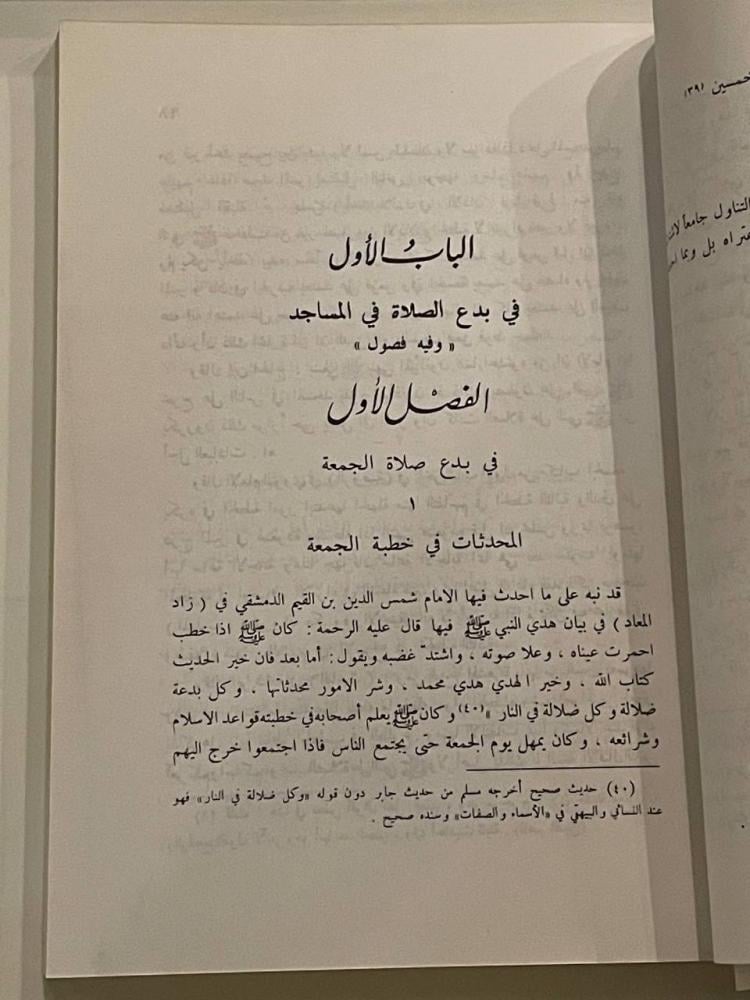 الباب الأول
في بدع الصلاة في المساجد
« وفيه فصول »
الفصل الأول
في بدع صلاة الجمعة
١
المحدثات في خطبة الجمعة
قد نبه على ما احدث فيها الامام شمس الدين بن القيم الدمشقي في ( زاد
المعاد ) في بيان هدي النبي ﷺ فيها قال عليه الرحمة : كان ﷺ اذا خطب
احمرت عيناه ، وعلا صوته ، واشتدّ غضبه ويقول : أما بعد فان خير الحديث
كتاب الله ، وخير الهدي هدي محمد ، وشر الامور محدثاتها ، وكل بدعة
ضلالة وكل ضلالة في النار »(٤٠) وكان ﷺ يعلم أصحابه في خطبته قواعد الاسلام
وشرائعه ، وكان يمهل يوم الجمعة حتى يجتمع الناس فاذا اجتمعوا خرج اليهم
(٤٠) حديث صحيح أخرجه مسلم من حديث جابر دون قوله «وكل ضلالة في النار» فهو
عند النسائي والبيهقي في «الأسماء والصفات» وسنده صحيح .
خمسين (٣٩)
التناول جامعاً
بل وبما